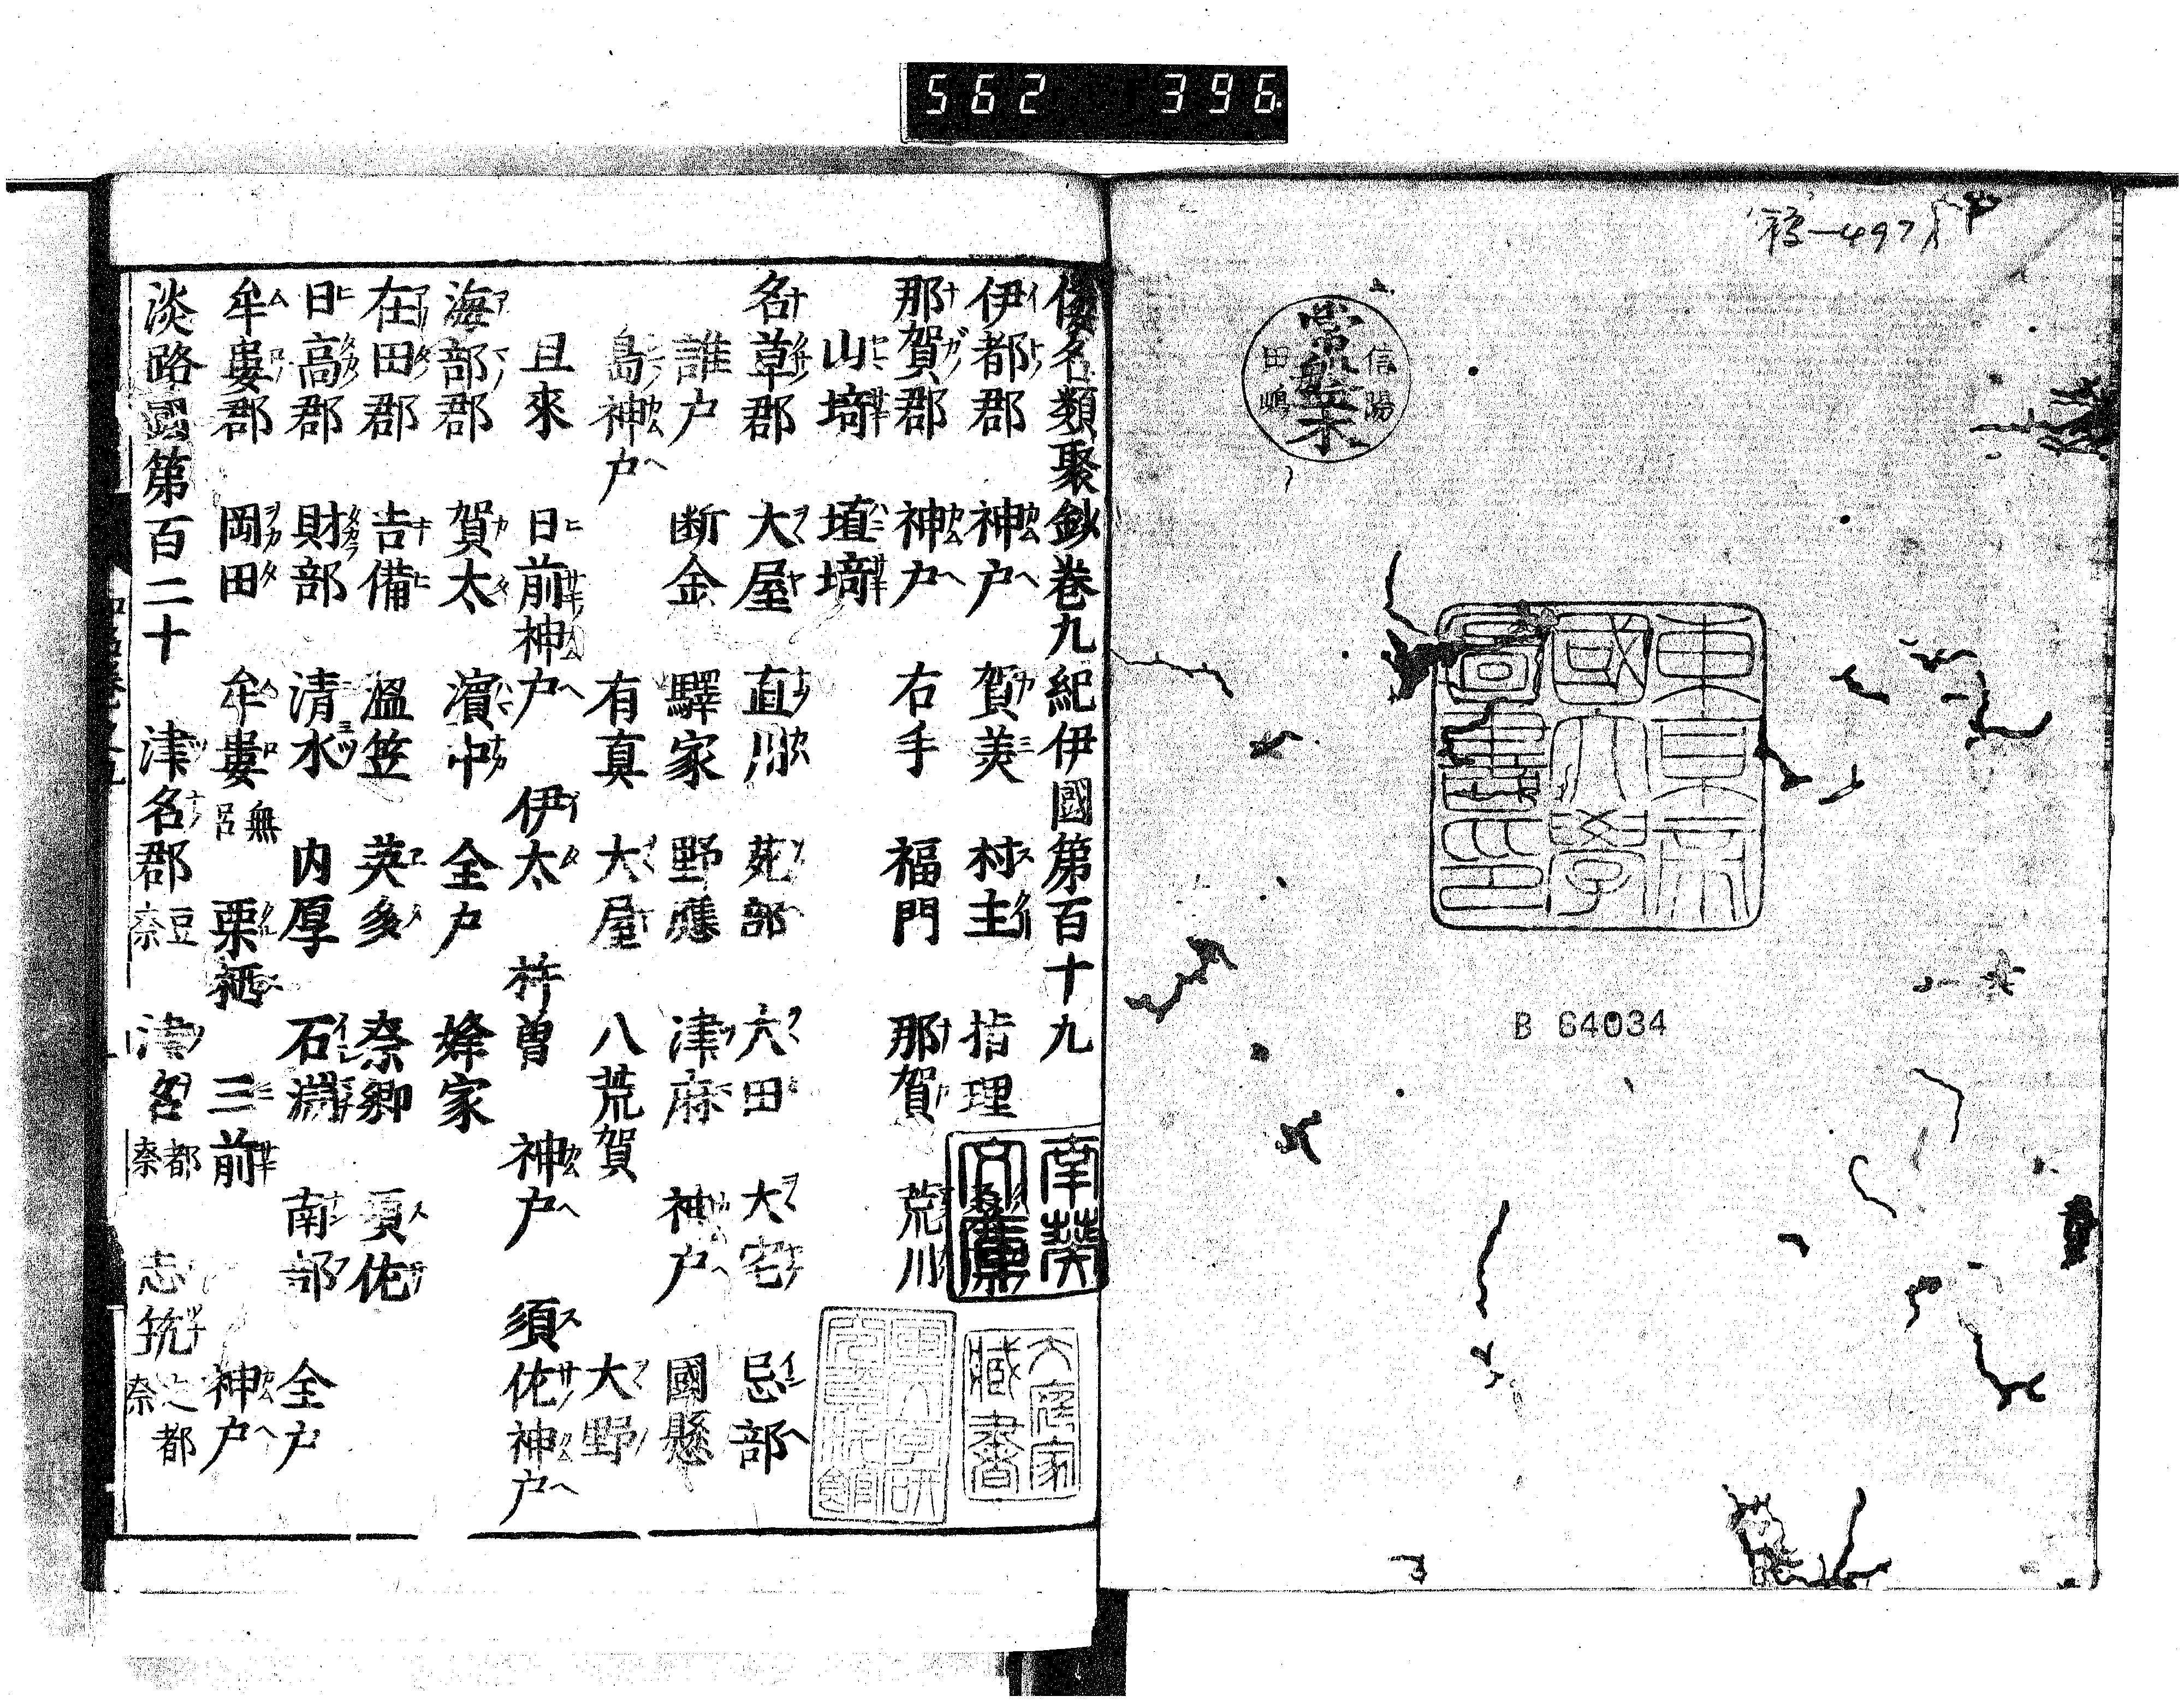 562 396
信陽
常盤木
田嶋
東京帝
國大學
圖書印
B 64034
倭名類聚鈔巻九紀伊國第百十九
伊都郡 神戸 賀美 村主 指理
那賀郡 神戸 右手 福門 那賀 荒川
山埼 埴埼
名草郡 大屋 直川 苑部 大田 大宅 忌部
誰戸 断金 驛家 野應 津麻 神戸 國懸
島神戸 有真 大屋 八荒賀 大野
且來 日前神戸 伊太 祚曽 神戸 須佐神戸
海部郡 賀太 濱中 全戸 烽家
在田郡 吉備 温笠 英多 奈郷 須佐
日高郡 財部 清水 内厚 石淵 南部 全戸
牟婁郡 岡田 牟婁無呂 栗栖 三前 神戸
淡路國第百二十 津名郡豆奈 津名都奈 志筑之都奈
大庭家
藏書